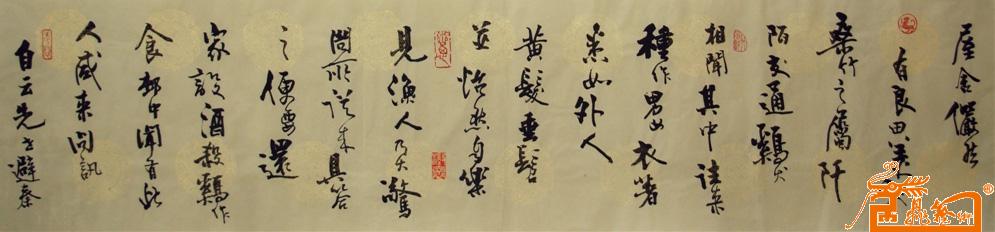 屋舍儼然
有良田美池
桑竹之屬阡
陌交通鷄犬
相聞其中往来
種作男女衣著
悉如外人
黄髮垂髫
並怡然自樂
見漁人乃大驚
問所從来具答
之便要還
家設酒殺鷄作
食村中聞有此
人咸来問訊
自云先世避秦